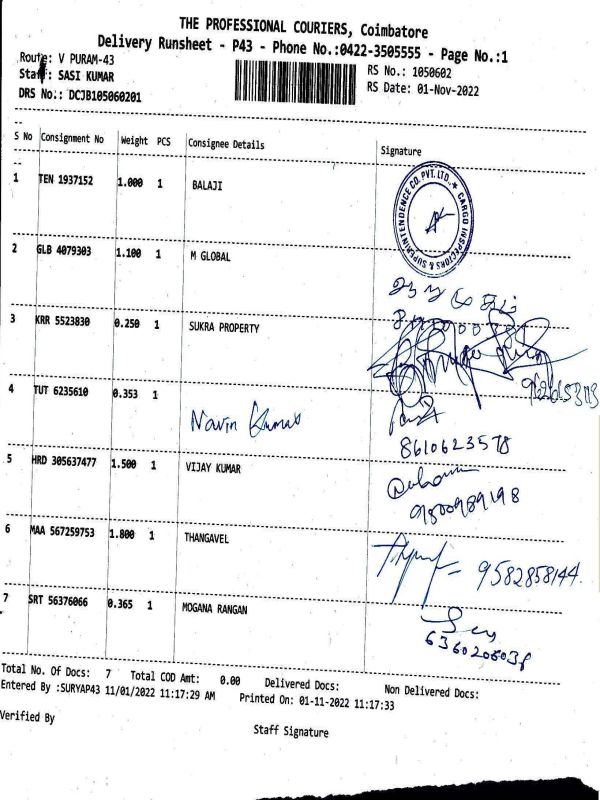 THE PROFESSIONAL COURIERS, Coimbatore
Delivery Runsheet - P43 - Phone No.:0422-3505555 - Page No.:1
Route: V PURAM-43
RS No.: 1050602
Staff: SASI KUMAR
RS Date: 01-Nov-2022
DRS No.: DCJB105060201
S No Consignment No Weight PCS Consignee Details Signature
1 TEN 1937152 1.000 1 BALAJI
CARGO INSPECTORS & SUPERINTENDENCE CO. PVT. LTD.
2 GLB 4079303 1.100 1 M GLOBAL
3 KRR 5523830 0.250 1 SUKRA PROPERTY
4 TUT 6235610 0.353 1
Navin Kumar
8610623578
5 HRD 305637477 1.500 1 VIJAY KUMAR
9500989198
6 MAA 567259753 1.800 1 THANGAVEL
= 9582858144
7 SRT 56376066 0.365 1 MOGANA RANGAN
Total No. Of Docs: 7 Total COD Amt: 0.00 Delivered Docs: Non Delivered Docs:
Entered By :SURYAP43 11/01/2022 11:17:29 AM Printed On: 01-11-2022 11:17:33
Verified By
Staff Signature